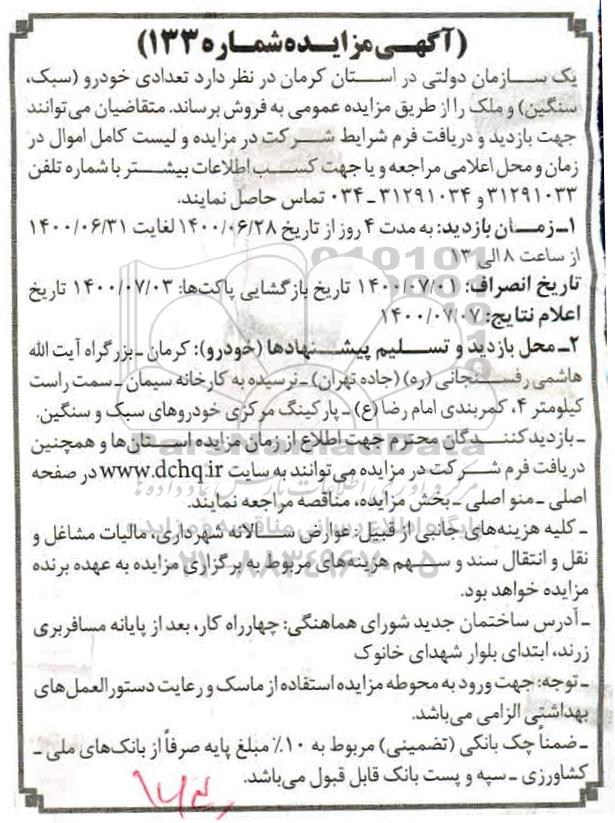 (آگهی مزایده شماره ۱۳۳)
یک سازمان دولتی در استان کرمان در نظر دارد تعدادی خودرو (سبک،
سنگین) و ملک را از طریق مزایده عمومی به فروش برساند. متقاضیان می‌توانند
جهت بازدید و دریافت فرم شرایط شرکت در مزایده و لیست کامل اموال در
زمان و محل اعلامی مراجعه و یا جهت کسب اطلاعات بیشتر با شماره تلفن
۳۱۲۹۱۰۳۳ و ۳۱۲۹۱۰۳۴ ـ ۰۳۴ تماس حاصل نمایند.
۱ـ زمان بازدید: به مدت ۴ روز از تاریخ ۱۴۰۰/۰۶/۲۸ لغایت ۱۴۰۰/۰۶/۳۱
از ساعت ۸ الی ۱۳
تاریخ انصراف: ۱۴۰۰/۰۷/۰۱ تاریخ بازگشایی پاکت‌ها: ۱۴۰۰/۰۷/۰۳ تاریخ
اعلام نتایج: ۱۴۰۰/۰۷/۰۷
۲ـ محل بازدید و تسلیم پیشنهادها (خودرو): کرمان ـ بزرگراه آیت الله
هاشمی رفسنجانی (ره) (جاده تهران) ـ نرسیده به کارخانه سیمان ـ سمت راست
کیلومتر ۴، کمربندی امام رضا (ع) ـ پارکینگ مرکزی خودروهای سبک و سنگین.
ـ بازدیدکنندگان محترم جهت اطلاع از زمان مزایده استان‌ها و همچنین
دریافت فرم شرکت در مزایده می‌توانند به سایت www.dchq.ir در صفحه
اصلی ـ منو اصلی ـ بخش مزایده، مناقصه مراجعه نمایند.
ـ کلیه هزینه‌های جانبی از قبیل: عوارض سالانه شهرداری، مالیات مشاغل و
نقل و انتقال سند و سهم هزینه‌های مربوط به برگزاری مزایده به عهده برنده
مزایده خواهد بود.
ـ آدرس ساختمان جدید شورای هماهنگی: چهارراه کار، بعد از پایانه مسافربری
زرند، ابتدای بلوار شهدای خانوک
ـ توجه: جهت ورود به محوطه مزایده استفاده از ماسک و رعایت دستورالعمل‌های
بهداشتی الزامی می‌باشد.
ـ ضمناً چک بانکی (تضمینی) مربوط به ۱۰٪ مبلغ پایه صرفاً از بانک‌های ملی ـ
کشاورزی ـ سپه و پست بانک قابل قبول می‌باشد.